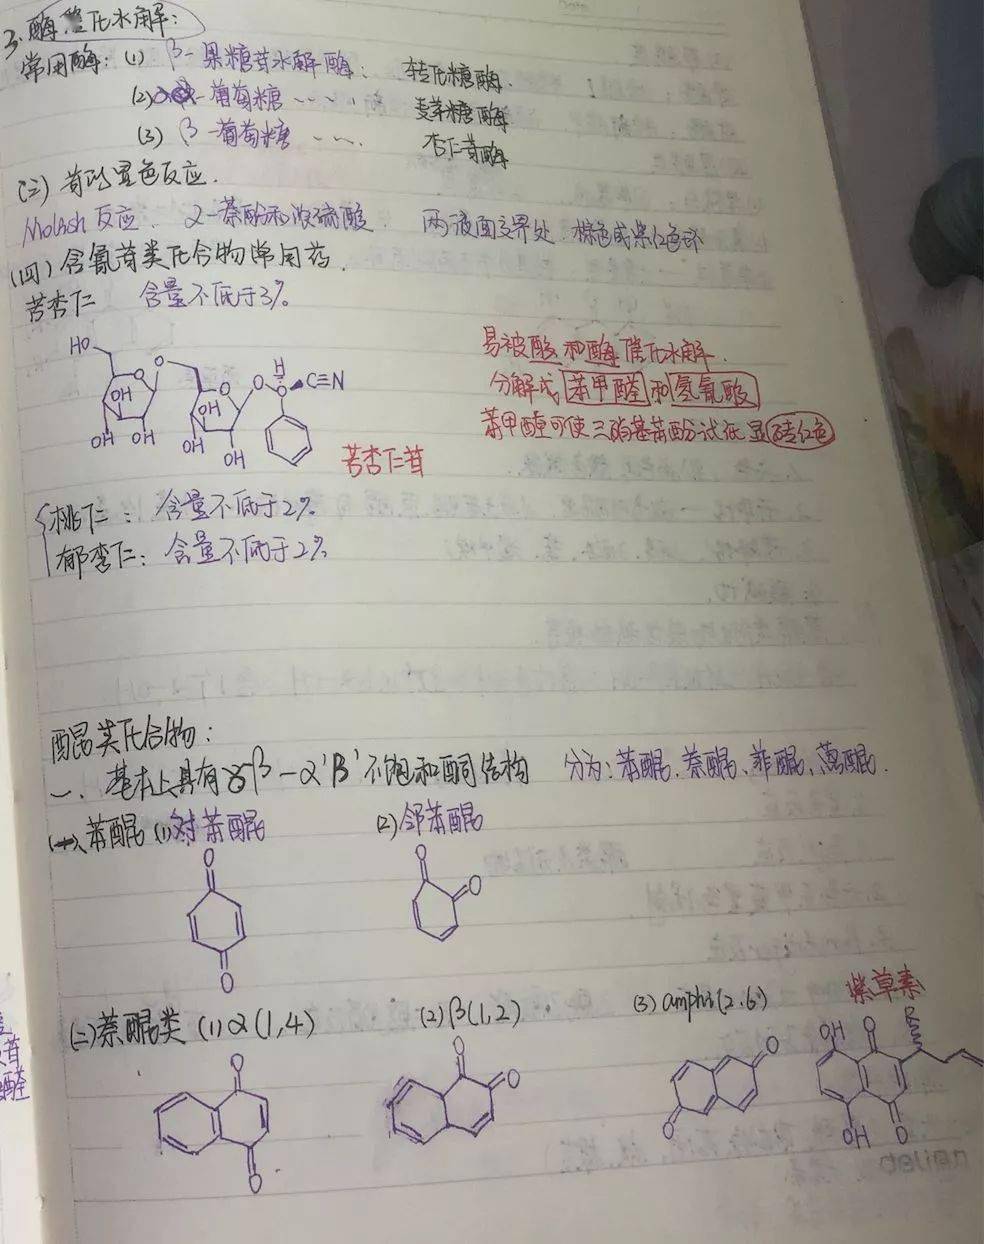 3. 酶催化水解:
常用酶: (1) β-果糖苷水解酶: 转化糖酶.
(2) α-葡萄糖 ······ 麦芽糖酶
(3) β-葡萄糖 ······ 杏仁苷酶
(三) 苷的显色反应.
Molish 反应. α-萘酚和浓硫酸. 两液面交界处 棕色或紫红色环
(四) 含氰苷类化合物常用药.
苦杏仁 含量不低于3%
易被酸和酶催化水解.
分解成 苯甲醛 和 氢氰酸
苯甲醛可使三硝基苯酚试纸显砖红色
HO
O
O
O
O
H
C≡N
OH
OH
OH
OH
OH
OH
苦杏仁苷
桃仁: 含量不低于2%
郁李仁: 含量不低于2%
醌类化合物:
一、基本上具有αβ-α'β'不饱和酮结构 分为: 苯醌、萘醌、菲醌、蒽醌.
(一)、苯醌 (1) 对苯醌 (2) 邻苯醌
O
O
O
O
(二) 萘醌类 (1) α(1,4) (2) β(1,2) (3) amphi(2.6) 紫草素
O
O
O
O
O
O
OH
O
R
OH
O